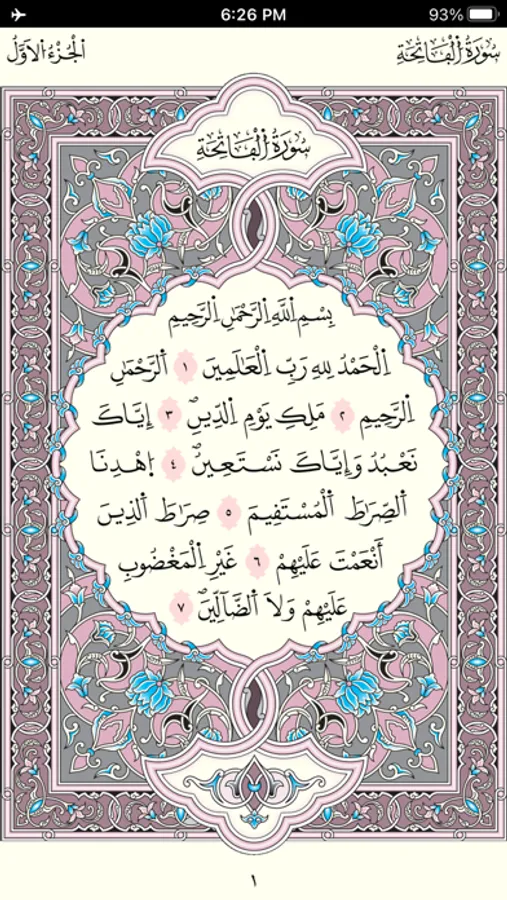 6:26 PM 93%
سُورَةُ الْفَاتِحَةِ الْجُزْءُ الْأَوَّلُ
سُورَةُ الْفَاتِحَةِ
بِسْمِ اِ۬للَّهِ اِ۬لرَّحْمَٰنِ اِ۬لرَّحِيمِ
اِ۬لْحَمْدُ لِلهِ رَبِّ اِ۬لْعَٰلَمِينَ ١ اَ۬لرَّحْمَٰنِ
اِ۬لرَّحِيمِ ٢ مَلِكِ يَوْمِ اِ۬لدِّينِۖ ٣ إِيَّاكَ
نَعْبُدُ وَإِيَّاكَ نَسْتَعِينُۖ ٤ اُ۪هْدِنَا
اَ۬لصِّرَٰطَ اَ۬لْمُسْتَقِيمَ ٥ صِرَٰطَ اَ۬لذِينَ
أَنْعَمْتَ عَلَيْهِمْ ٦ غَيْرِ اِ۬لْمَغْضُوبِ
عَلَيْهِمْ وَلَا اَ۬لضَّآلِّينَۖ ٧
١